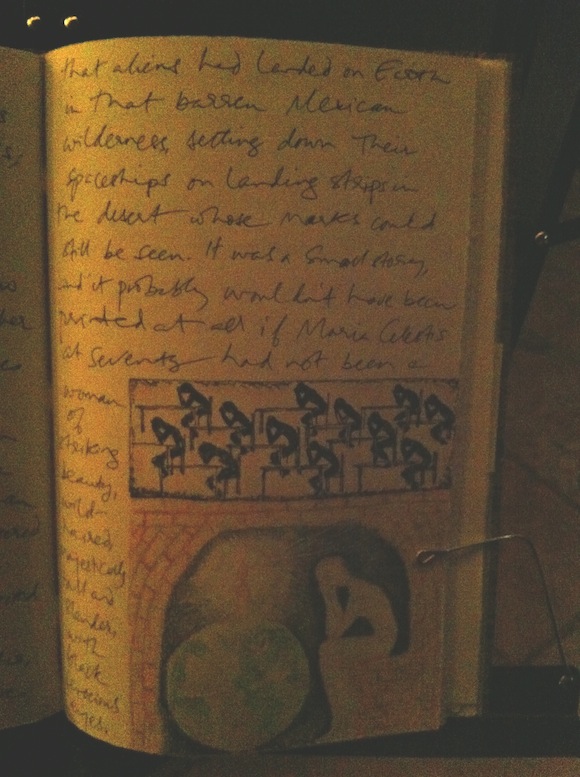 that aliens had landed on Earth
in that barren Mexican
wilderness, setting down their
spaceships on landing strips in
the desert whose marks could
still be seen. It was a small story,
and it probably wouldn't have been
printed at all if Maria Celestis
at seventy had not been a
woman
of
striking
beauty,
wild-
haired,
majestically
tall and
slender,
with
black
ferocious
eyes.